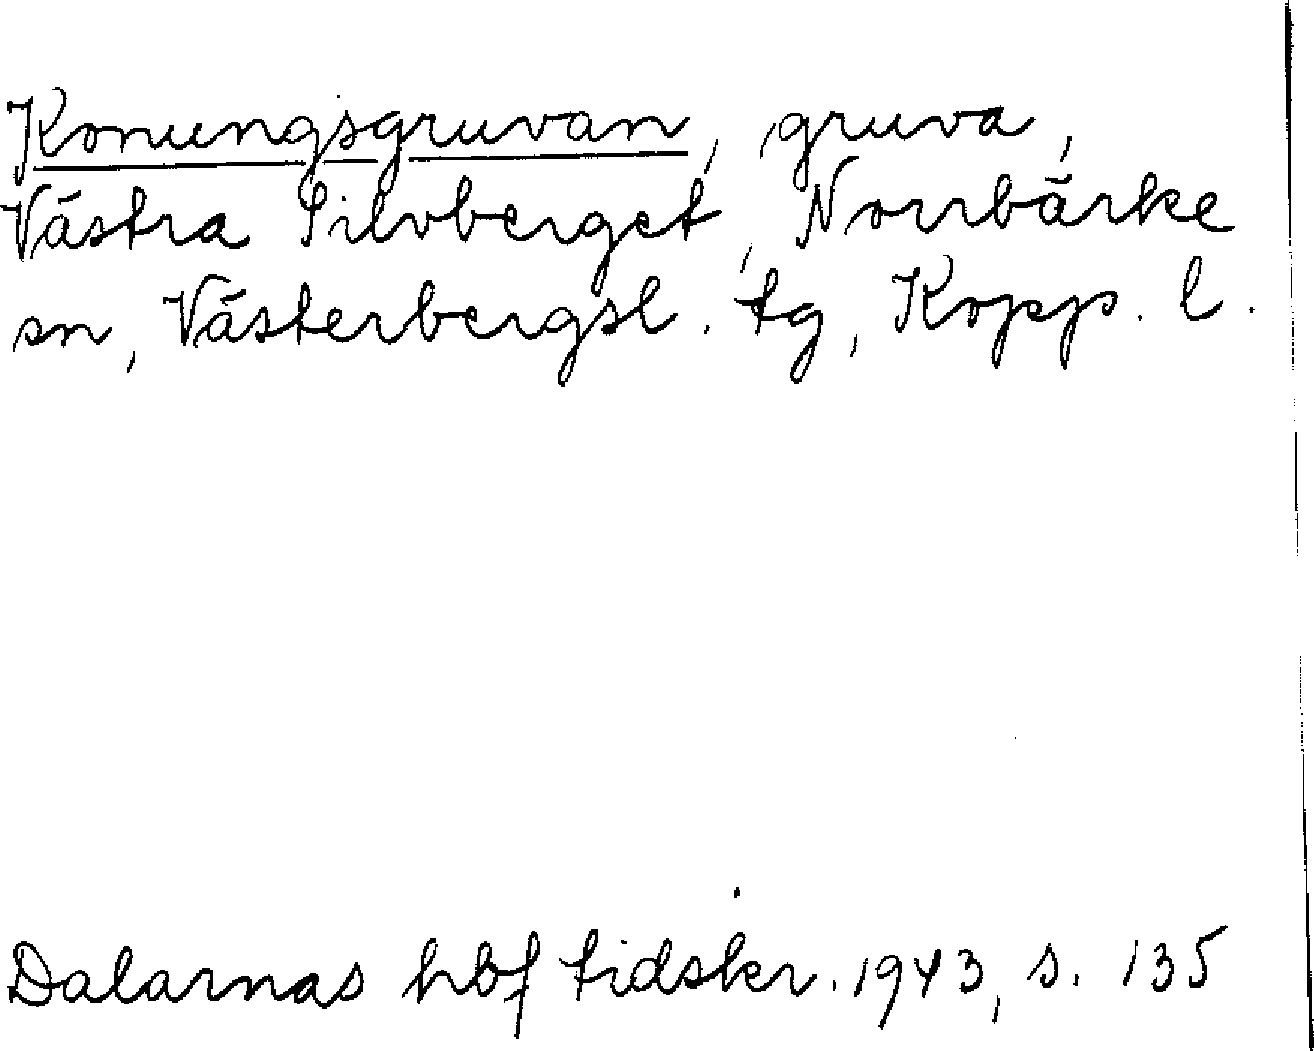 Konungsgruvan, gruva,
Västra Silvberget, Norrbärke
sn, Västerbergsl. tg, Kopp. l.
Dalarnas hbf tidskr. 1943, s. 135